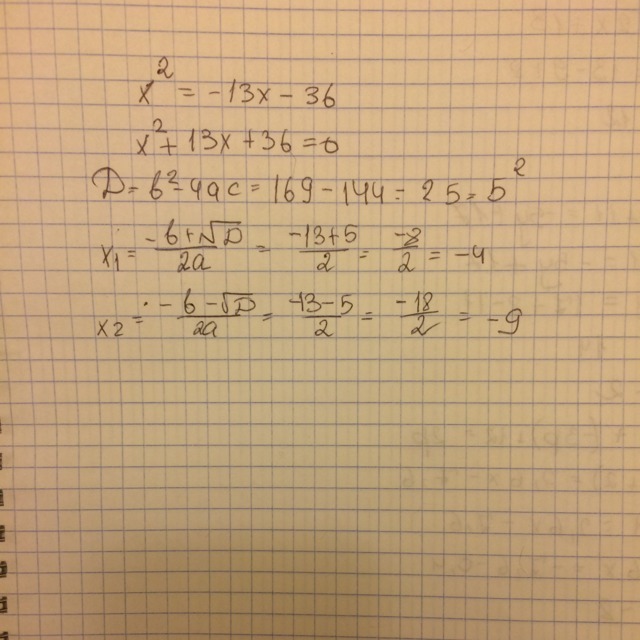 x² = -13x - 36
x² + 13x + 36 = 0
D = b² - 4ac = 169 - 144 = 25 = 5²
x₁ = (-b+√D)/2a = (-13+5)/2 = -8/2 = -4
x₂ = (-b-√D)/2a = (-13-5)/2 = -18/2 = -9